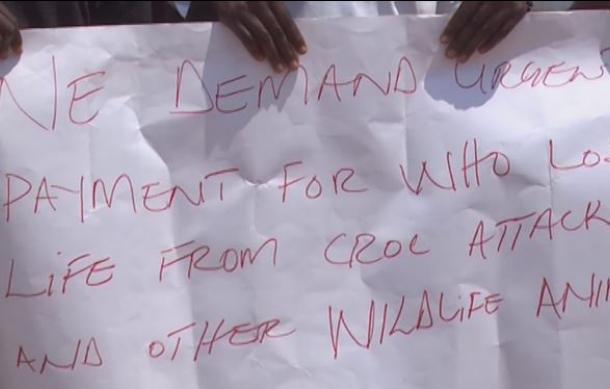 WE DEMAND URGEN
PAYMENT FOR WHO LOS
LIFE FROM CROC ATTACK
AND OTHER WILDLIFE ANI